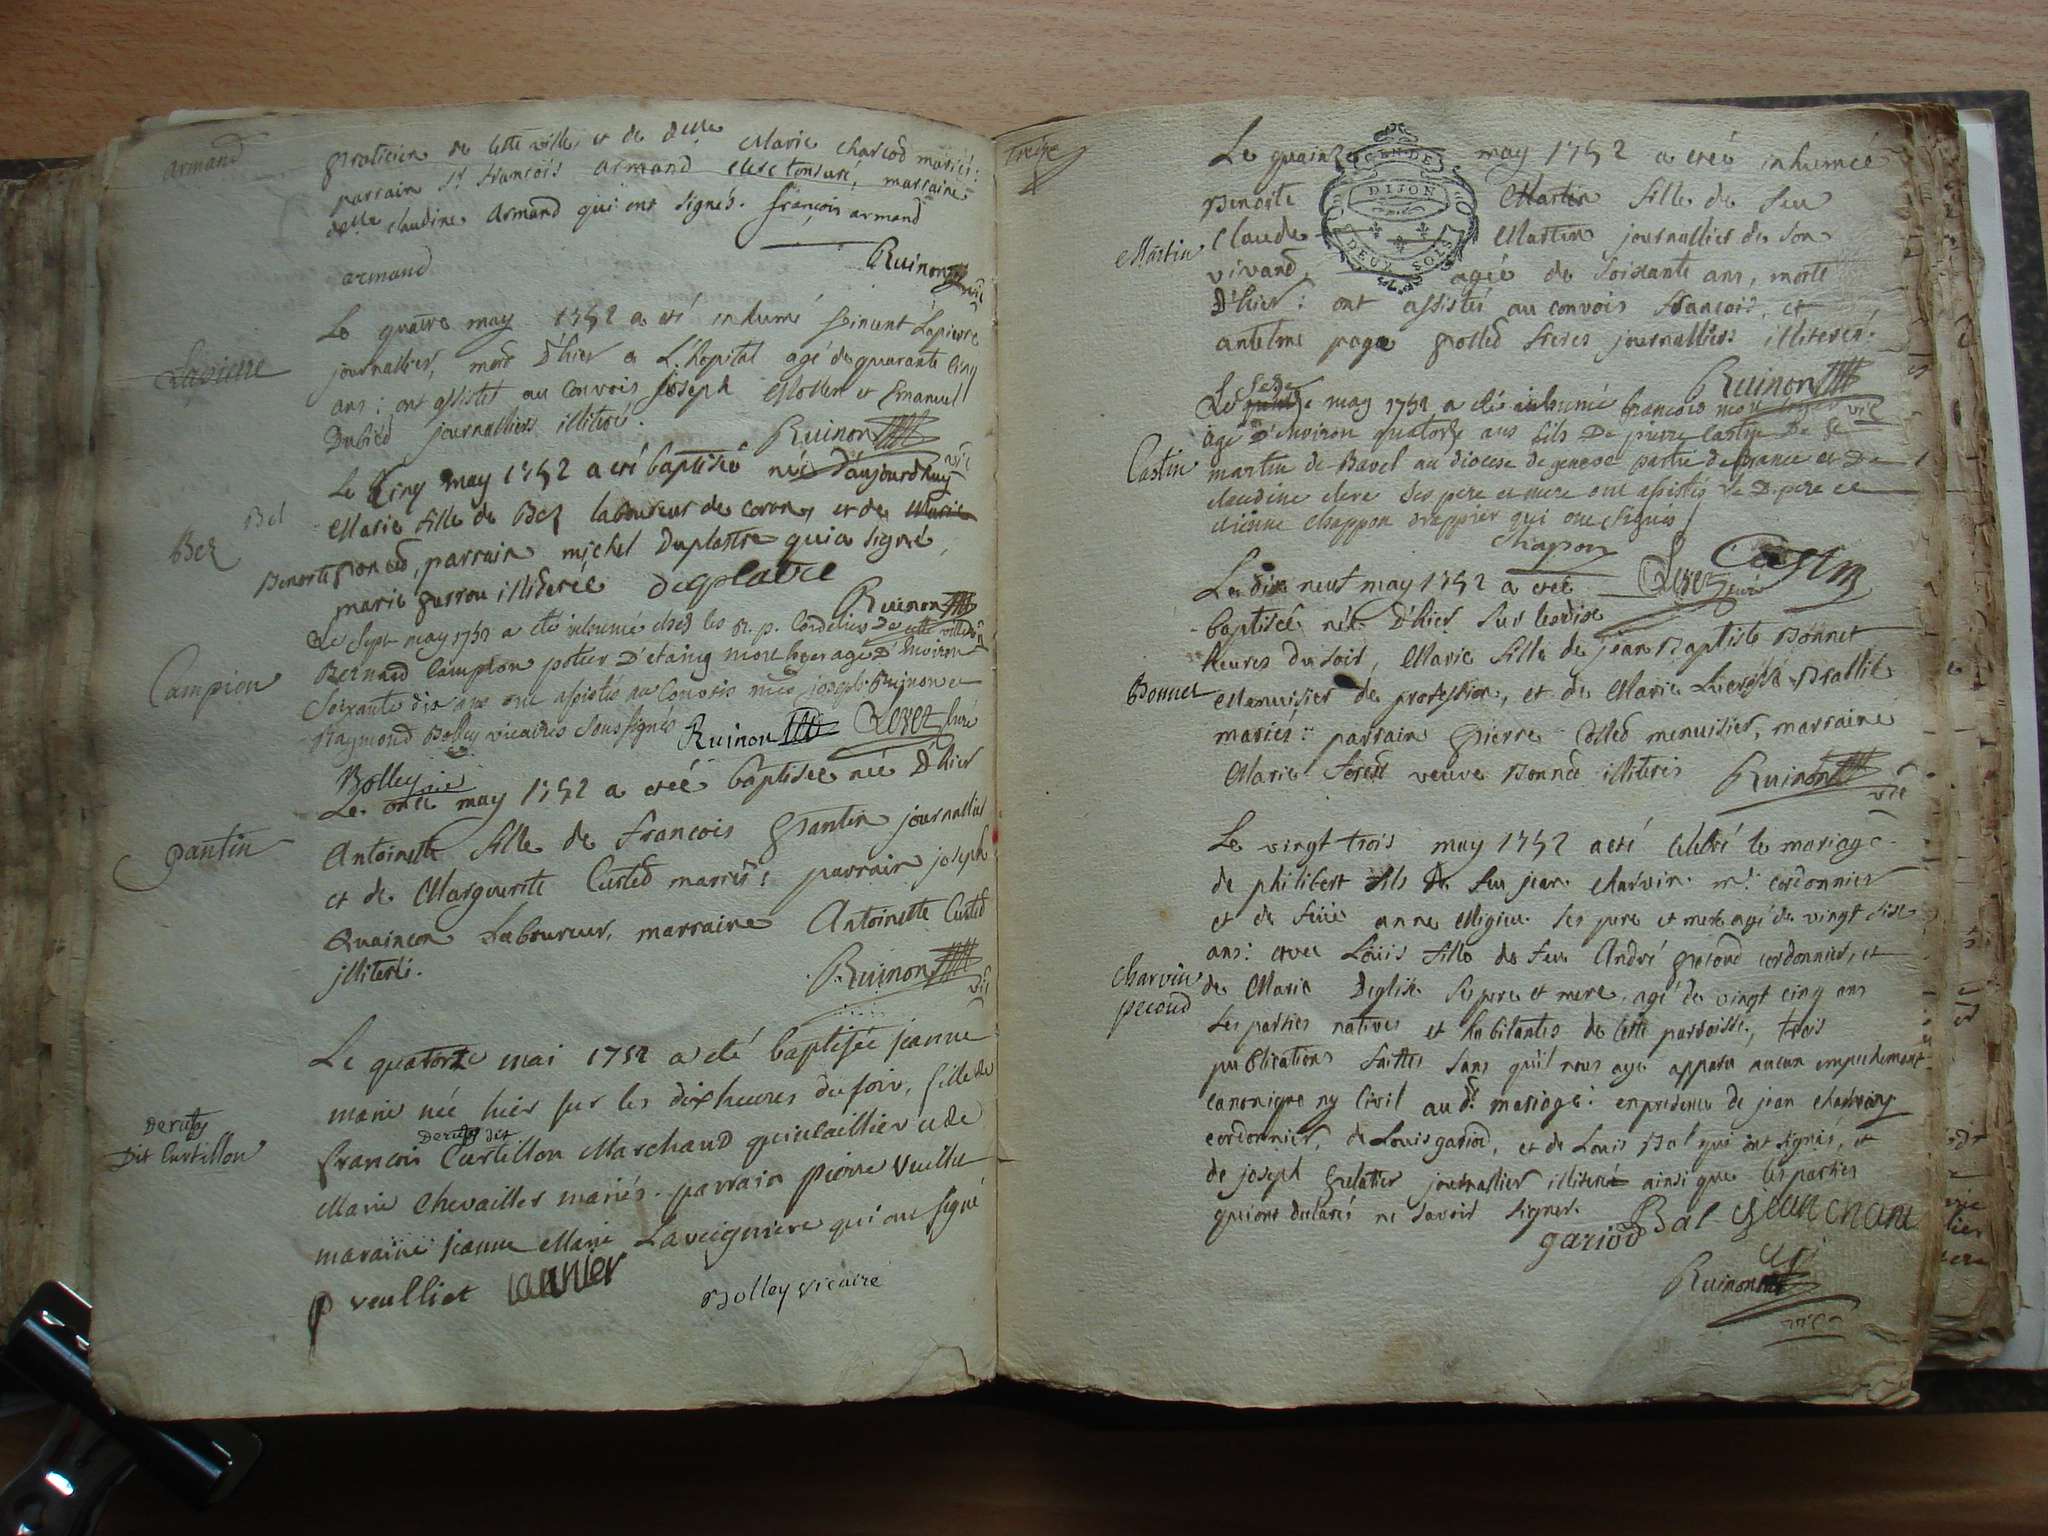 armand
praticien de cette ville et de delle Marie Charcod mariés:
parrain Sr françois armand clerc tonsuré, marraine
delle claudine Armand qui ont signés. françois armand
armand
Ruinon vic
Lapierre
Le quatre may 1752 a eté inhumé Lapierre
journallier, mord d'hier a L'hopital agé de quarante cinq
ans: ont assistet au convois Joseph et Emanuel
Dubied journalliers illiteré.
Ruinon
vic
Bel
Bez
Le cinq may 1752 a eté baptisée née d'aujourdhuy
Marie fille de Bez laboureur de coron, et de Marie
Benoite poncéd, parrain michel Duplastre qui a signé,
marie gurrou illiterée duplatre
Ruinon
vic
Campion
Le Sept may 1752 a eté inhumé chez les R. p. Cordeliers De cette ville
Bernard Campion potier D'etaing mort hyer agé D'environ
Soixante dix ans ont assistés au Convois mrs joseph Ruinon et
Raymond Bolley vicaires Soussignés Ruinon curé
Bolley vic
pantin
Le onze may 1752 a eteé baptisée née D'hier
Antoinette fille de françois pantin journallier
et de Marguerite Curted mariés: parrain joseph
Quainçon Laboureur, marraine Antoinette Curted
jlliterés.
Ruinon
vic
Deruty
Dit Curtillon
Le quatorze mai 1752 a eté baptisée jeanne
marie née hier sur les dix heures du soir, fille de
Deruty dit
françois Curtillon Marchand quincaillier et de
Marie Chevailler mariés. parrain pierre Vuillet
maraine jeanne Marie Laveigniere qui ont signé
p veulliet
Bolley vicaire
treize
Martin
Le quainze may 1752 a eteé inhumée
Benoite Martin fille de feu
GEN. DE
DIJON
DEUX SOLS
Claude Martin journallier de son
vivand, ageé de soixante ans, morte
D'hier: ont assistés au convois françois, et
antelme page frères journalliers illiterés.
Ruinon
vic
Castin
Seize
Le may 1752 a eté inhumé françois mort
agé D'environ quatorze ans fils De pierre Castin De St
martin de Bavel au diocese de geneve partie de france et De
claudine clere Ses pere et mere ont assistés Le D. pere et
etienne Chappon drappier qui ont Signés
Chapon
Castin
curé
Bonnet
Le dix neuf may 1752 a eteé
baptisée née D'hier sur les dix
heures du soir, Marie fille de jean Baptiste Bonnet
Menuisier de profession, et de Marie Lucresse Brallie
mariés: parrain pierre Colled menuisier, marraine
Marie forest veuve Bonned illiterés
Ruinon
vic
Charvin
pecoud
Le vingt trois may 1752 a eté célébré le mariage
de philibert fils de feu jean Charvin mr. cordonnier
et de feüe anne Migieu ses pere et mere agé de vingt sixt
ans: avec Louis fille de feu André pecoud cordonnier, et
de Marie Deglise ses pere et mere, agé de vingt cinq ans
Les parties natives et habitantes de cette parroisse, trois
publications faittes sans qu'il nous aye apparu aucun empechement
canonique ny Civil au dt. mariage: en presence de jean charving
cordonnier, de Louis gariod, et de Louis Bal qui ont signés, et
de joseph gelatier journallier illiteré ainsi que les parties
qui ont déclarés ne savoir signer.
gariod Bal jean charvi
Ruinon
vic